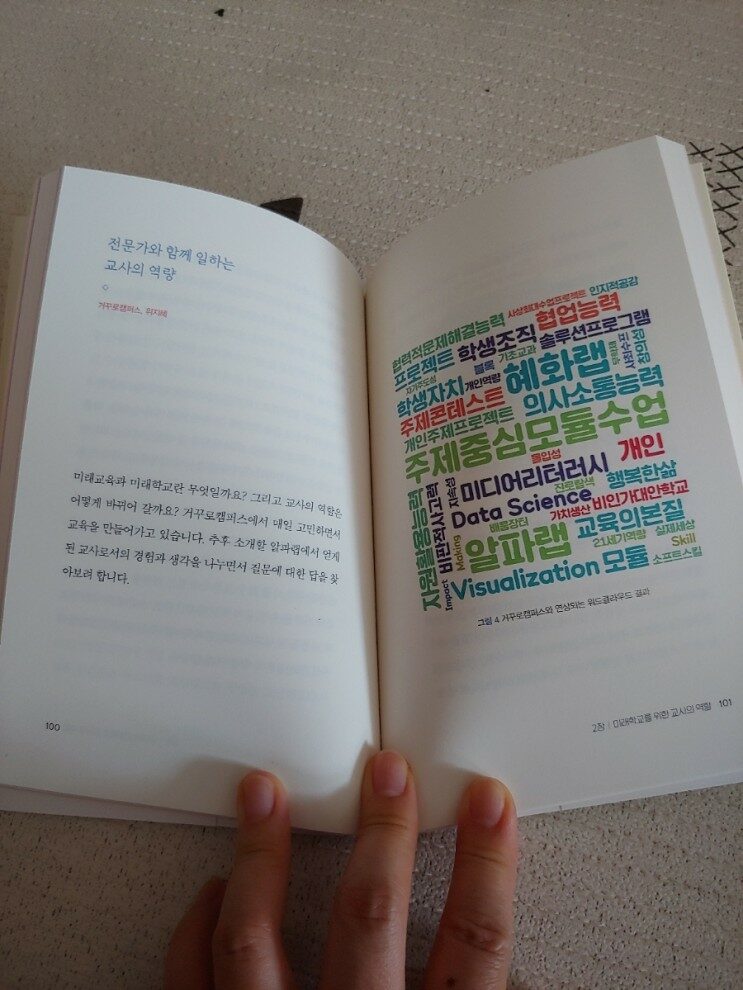 전문가와 함께 일하는
교사의 역량
거꾸로캠퍼스, 위지혜
미래교육과 미래학교란 무엇일까요? 그리고 교사의 역할은
어떻게 바뀌어 갈까요? 거꾸로캠퍼스에서 매일 고민하면서
교육을 만들어가고 있습니다. 추후 소개할 알파랩에서 얻게
된 교사로서의 경험과 생각을 나누면서 질문에 대한 답을 찾
아보려 합니다.
100
협력적문제해결능력
사상최대수업프로젝트
인지적공감
프로젝트
학생조직
협업능력
자기주도성
블록
기초교과
솔루션프로그램
학생자치
개인역량
혜화랩
창의성
주제콘테스트
의사소통능력
개인주제프로젝트
주제중심모듈수업
몰입성
개인
자원활용능력
비판적사고력
지속성
미디어리터러시
진로탐색
행복한삶
Data Science
가치생산
비인가대안학교
배움장터
교육의본질
Making
알파랩
21세기역량
실제세상
Skill
Impact
Visualization
모듈
소프트스킬
그림 4 거꾸로캠퍼스와 연상되는 워드클라우드 결과
2장 | 미래학교를 위한 교사의 역할 101